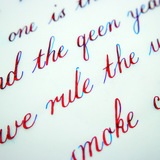 one is th
d the geen yea
we rule the u
smoke c